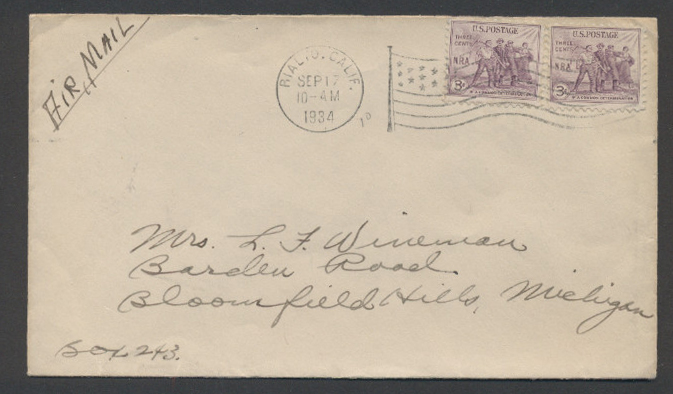 AIR MAIL
RIALTO, CALIF.
SEP 17
10-AM
1934
U.S. POSTAGE
THREE
CENTS
N.R.A.
3¢
U.S. POSTAGE
THREE
CENTS
N.R.A.
3¢
Mrs. L. F. Wineman
Barden Road
Bloomfield Hills, Michigan
Box 243.